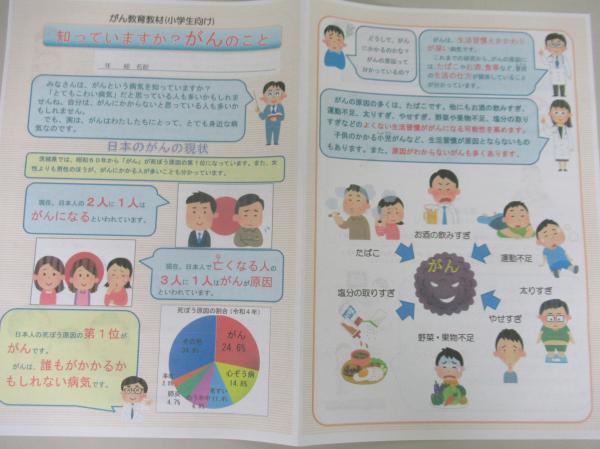 がん教育教材(小学生向け)
知っていますか?がんのこと
年 組 名前
みなさんは、がんという病気を知っていますか?
「とてもこわい病気」だと思っている人も多いかもしれませ
んね。自分は、がんにかからないと思っている人も多いか
もしれません。
でも、実は、がんはわたしたちにとって、とても身近な病
気なのです。
日本のがんの現状
茨城県では、昭和60年から「がん」が死ぼう原因の第1位になっています。また、女
性よりも男性のほうが、がんにかかる人が多いことも分かっています。
現在、日本人の2人に1人は
がんになるといわれています。
現在、日本人で亡くなる人の
3人に1人はがんが原因
といわれています。
日本人の死ぼう原因の第1位が
がんです。
がんは、誰もがかかるか
もしれない病気です。
死ぼう原因の割合(令和4年)
がん
24.6%
心ぞう病
14.8%
老すい
11.4%
のう卒中
肺炎
4.7%
その他
どうして、がん
にかかるのかな?
がんの原因って
分かっているの?
がんは、生活習慣とかかわり
が深い病気です。
これまでの研究から、がんの原因
には、たばこやお酒、食事など、普段
の生活の仕方が関係していること
が分かっています。
がんの原因の多くは、たばこです。他にもお酒の飲みすぎ、
運動不足、太りすぎ、やせすぎ、野菜や果物不足、塩分の取り
すぎなどのよくない生活習慣ががんになる可能性を高めます。
子供のかかる小児がんなど、生活習慣が原因とならないもの
もあります。また、原因がわからないがんも多くあります。
お酒の飲みすぎ
たばこ
運動不足
がん
塩分の取りすぎ
太りすぎ
やせすぎ
野菜・果物不足